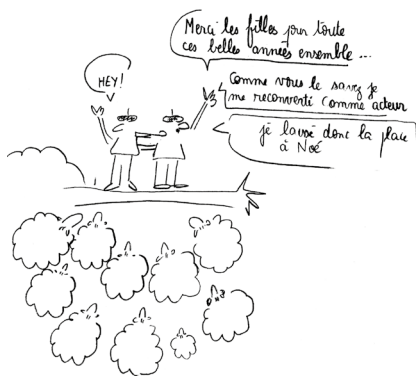 HEY!
Merci les filles pour toute
ces belles années ensemble ...
Comme vous le savez je
me reconverti comme acteur
je laisse donc la place
à Noé